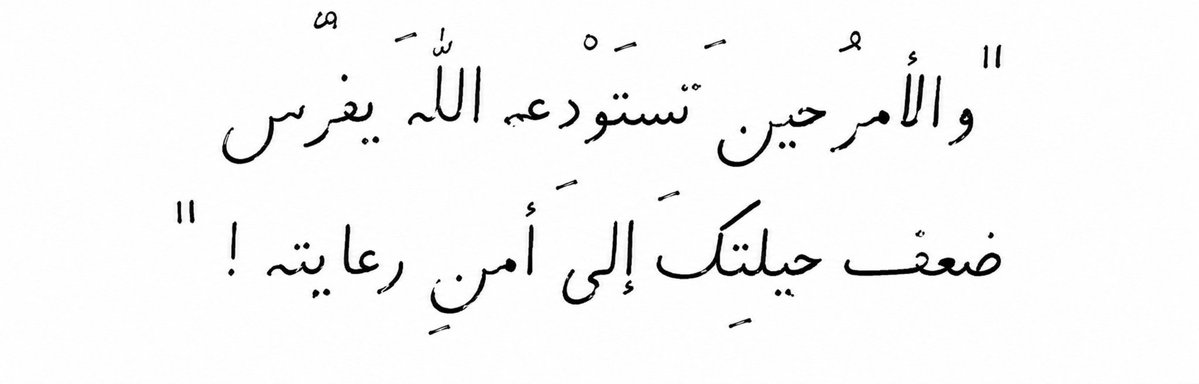 "والأمرُ حين تَستَوْدعه اللهَ يفرُّس
ضعف حيلتِكَ إلىَ أمنِ رعايته ! "